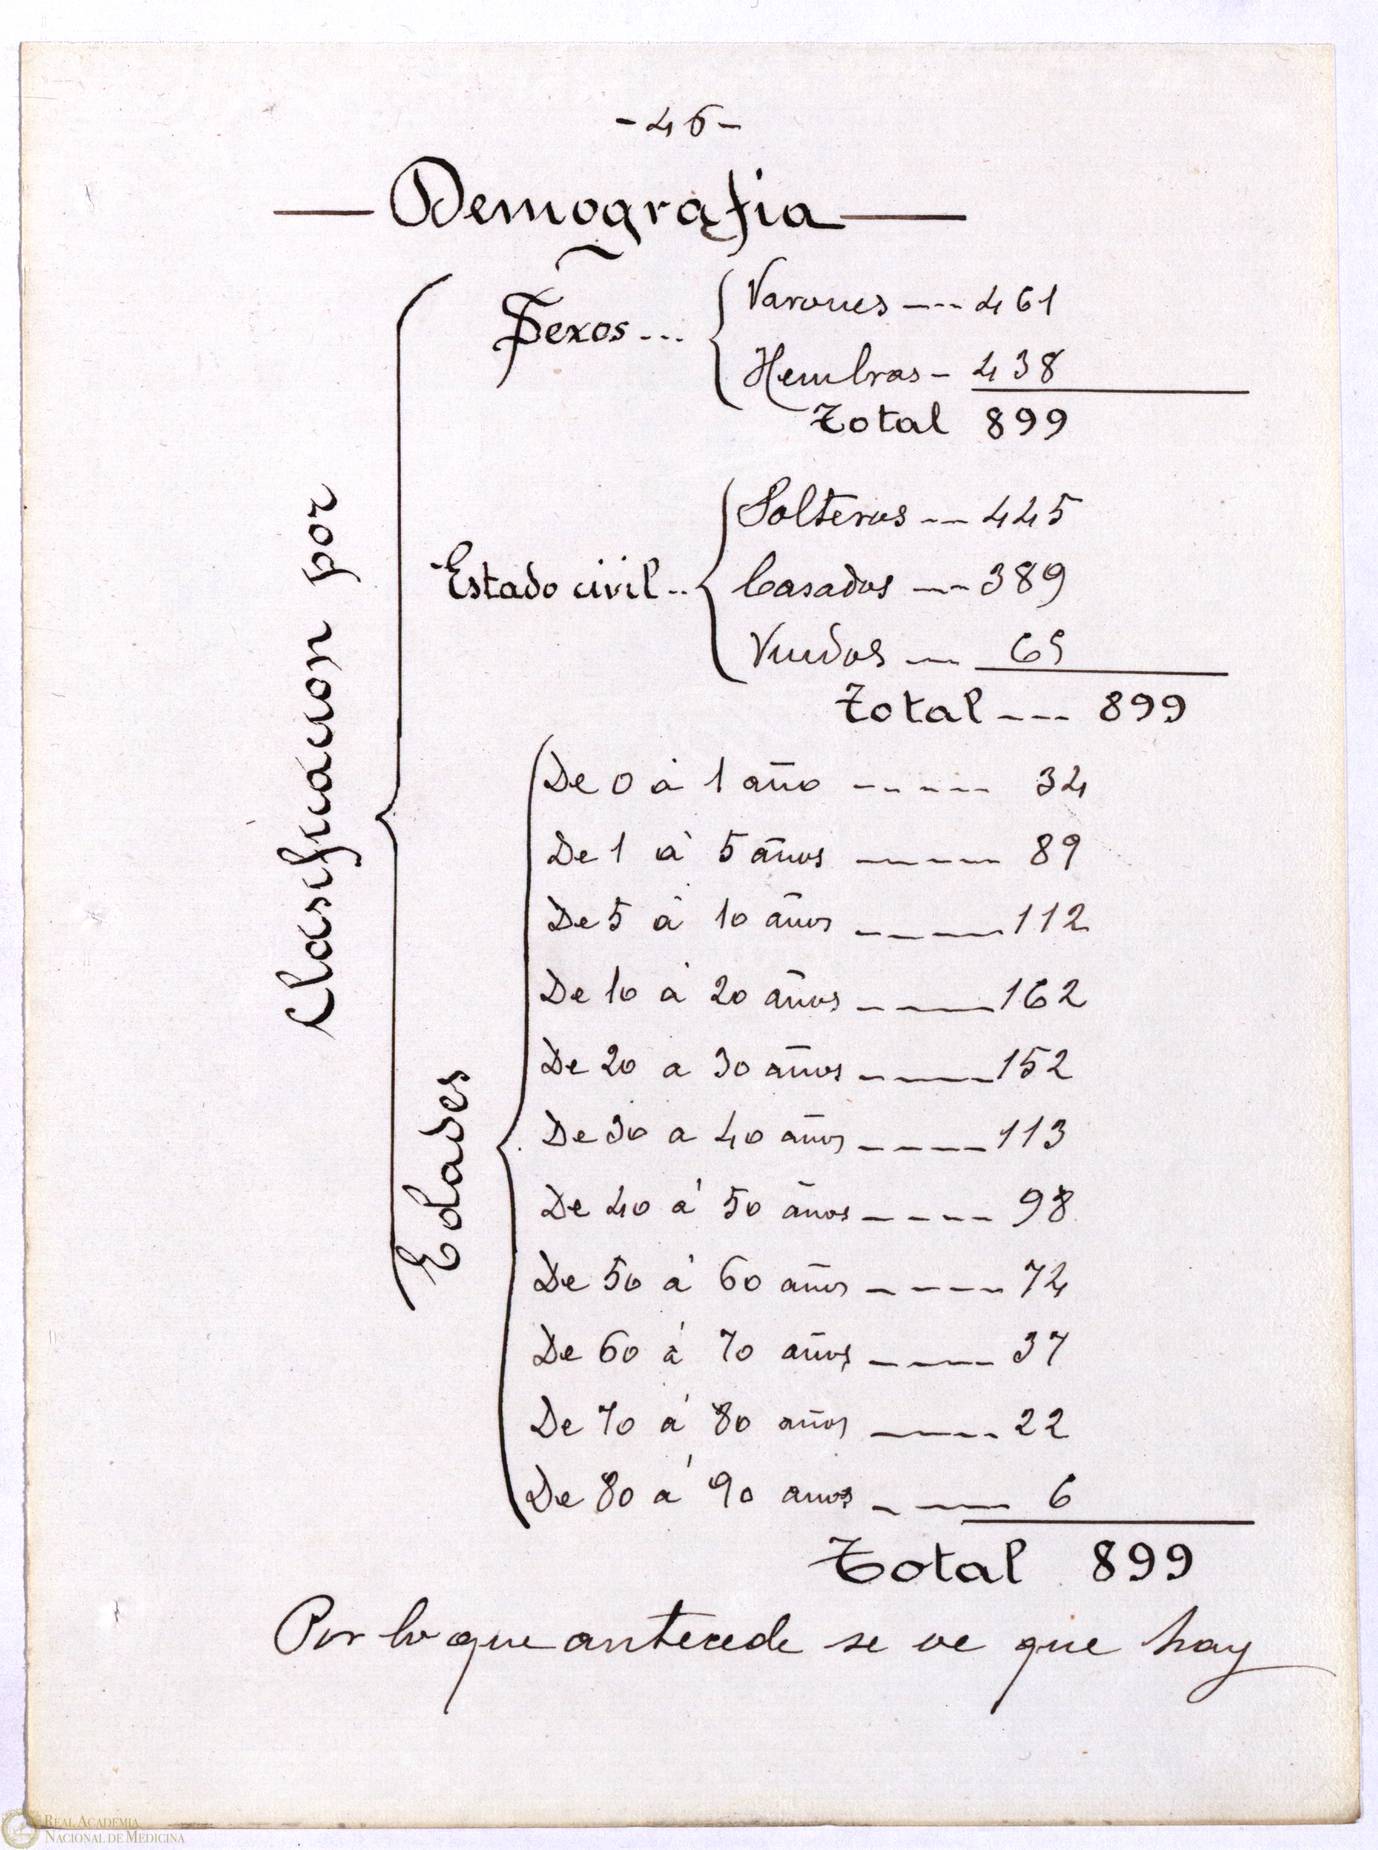 - 46 -
Demografia
Clasificacion por
Sexos ...
Varones --- 461
Hembras - 438
Total 899
Estado civil ..
Solteros --- 445
Casados --- 389
Viudos --- 65
Total --- 899
Edades
De 0 á 1 año ----- 34
De 1 á 5 años ----- 89
De 5 á 10 años ----- 112
De 10 á 20 años ----- 162
De 20 a 30 años ----- 152
De 30 a 40 años ----- 113
De 40 á 50 años ---- 98
De 50 á 60 años ----- 74
De 60 á 70 años ----- 37
De 70 á 80 años ----- 22
De 80 á 90 anos ---- 6
Total 899
Por lo que antecede se ve que hay
REAL ACADEMIA
NACIONAL DE MEDICINA